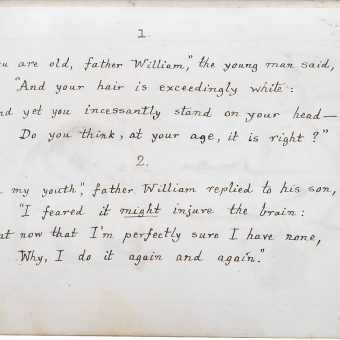 1.
u are old, father William," the young man said,
"And your hair is exceedingly white:
nd yet you incessantly stand on your head—
Do you think, at your age, it is right?"
2.
my youth", father William replied to his son,
"I feared it might injure the brain:
t now that I'm perfectly sure I have none,
Why, I do it again and again."